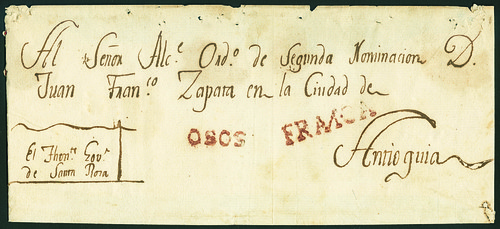 Al Señor Alc.e Ord.o de Segunda Nominacion D.
Juan Fran.co Zapata en la Ciudad de
OSOS FRANCA
Antioquia
El Then.te Gov.r
de Santa Rosa